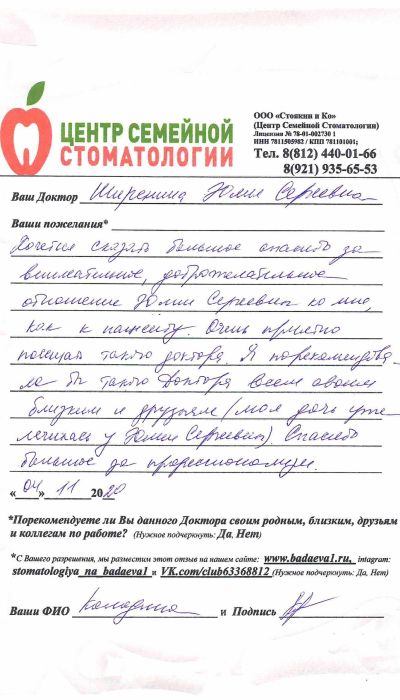 ЦЕНТР СЕМЕЙНОЙ
СТОМАТОЛОГИИ
ООО «Стоякин и Ко»
(Центр Семейной Стоматологии)
Лицензия № 78-01-002730 1
ИНН 7811505982 / КПП 781101001;
Тел. 8(812) 440-01-66
8(921) 935-65-53
Ваш Доктор Ширенина Юлия Сергеевна
Ваши пожелания*
Хочеться сказать большое спасибо за
внимательное, доброжелательное
отношение Юлии Сергеевны ко мне,
как к пациенту. Очень приятно
посещать такого доктора. Я порекомендова-
ла бы такого Доктора всем своим
близким и друзьям (моя дочь уже
лечилась у Юлии Сергеевны). Спасибо
большое за профессионализм.
«04» 11 2020
*Порекомендуете ли Вы данного Доктора своим родным, близким, друзьям
и коллегам по работе? (Нужное подчеркнуть: Да, Нет)
*С Вашего разрешения, мы разместим этот отзыв на нашем сайте: www.badaeva1.ru, intagram:
stomatologiya_na_badaeva1 и VK.com/club63368812 (Нужное подчеркнуть: Да, Нет)
Ваши ФИО и Подпись